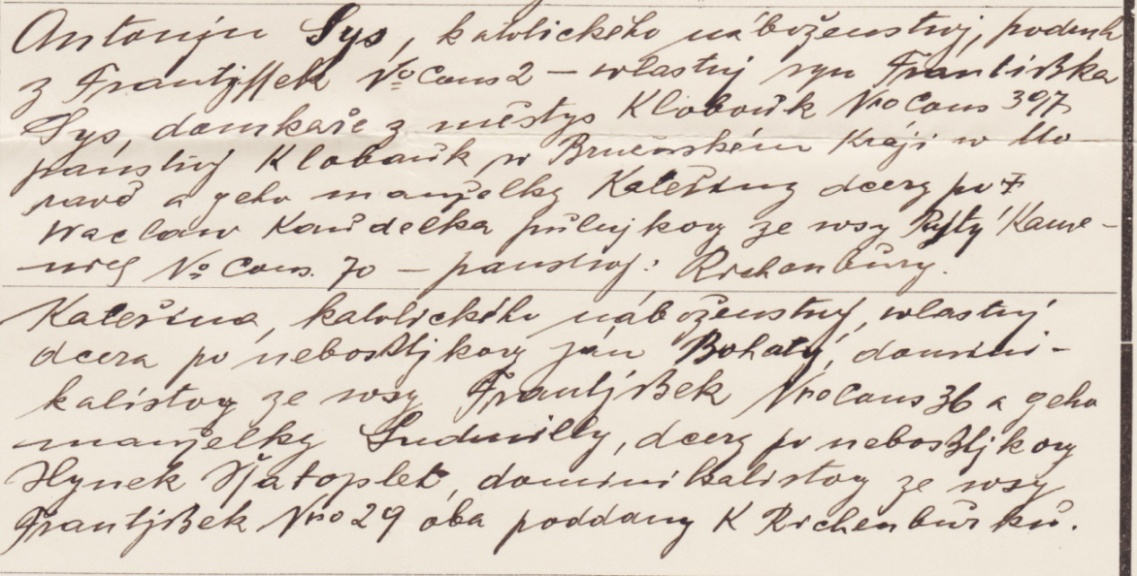 Antonjn Sys, katolického náboženstvj, podruh
z Frantjssek No Cons 2 – wlastnj syn Frantisska
Sys, domkaře z městys Klobauk Nro Cons 307
panstwj Klobauk, w Brněnském Kraji w Mo
rawě a geho manželky Kateřiny dcery po †
Waclaw Kaudelka půlnjkowy ze wsy Pustý Kame-
nicy No Cons. 70 – panstwj: Richenburg.
Kateřina, katolického náboženstwj, wlastnj
dcera po nebosstjkowy Ján Bohatý, domini-
kalistowy ze wsy Frantjssek Nro Cons 36 a geho
manželky Ludmilly, dcery po nebosstjkowy
Hynek Natoplet, dominikalistowy ze wsy
Frantjssek Nro 29 oba poddany K Richenburku.